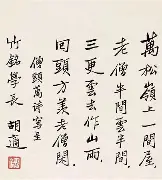 萬松嶺上一間屋
老僧半間雲半間
三更雲去作山雨
回頭方羨老僧閑
僧顯萬詩寫呈
竹銘學長 胡適